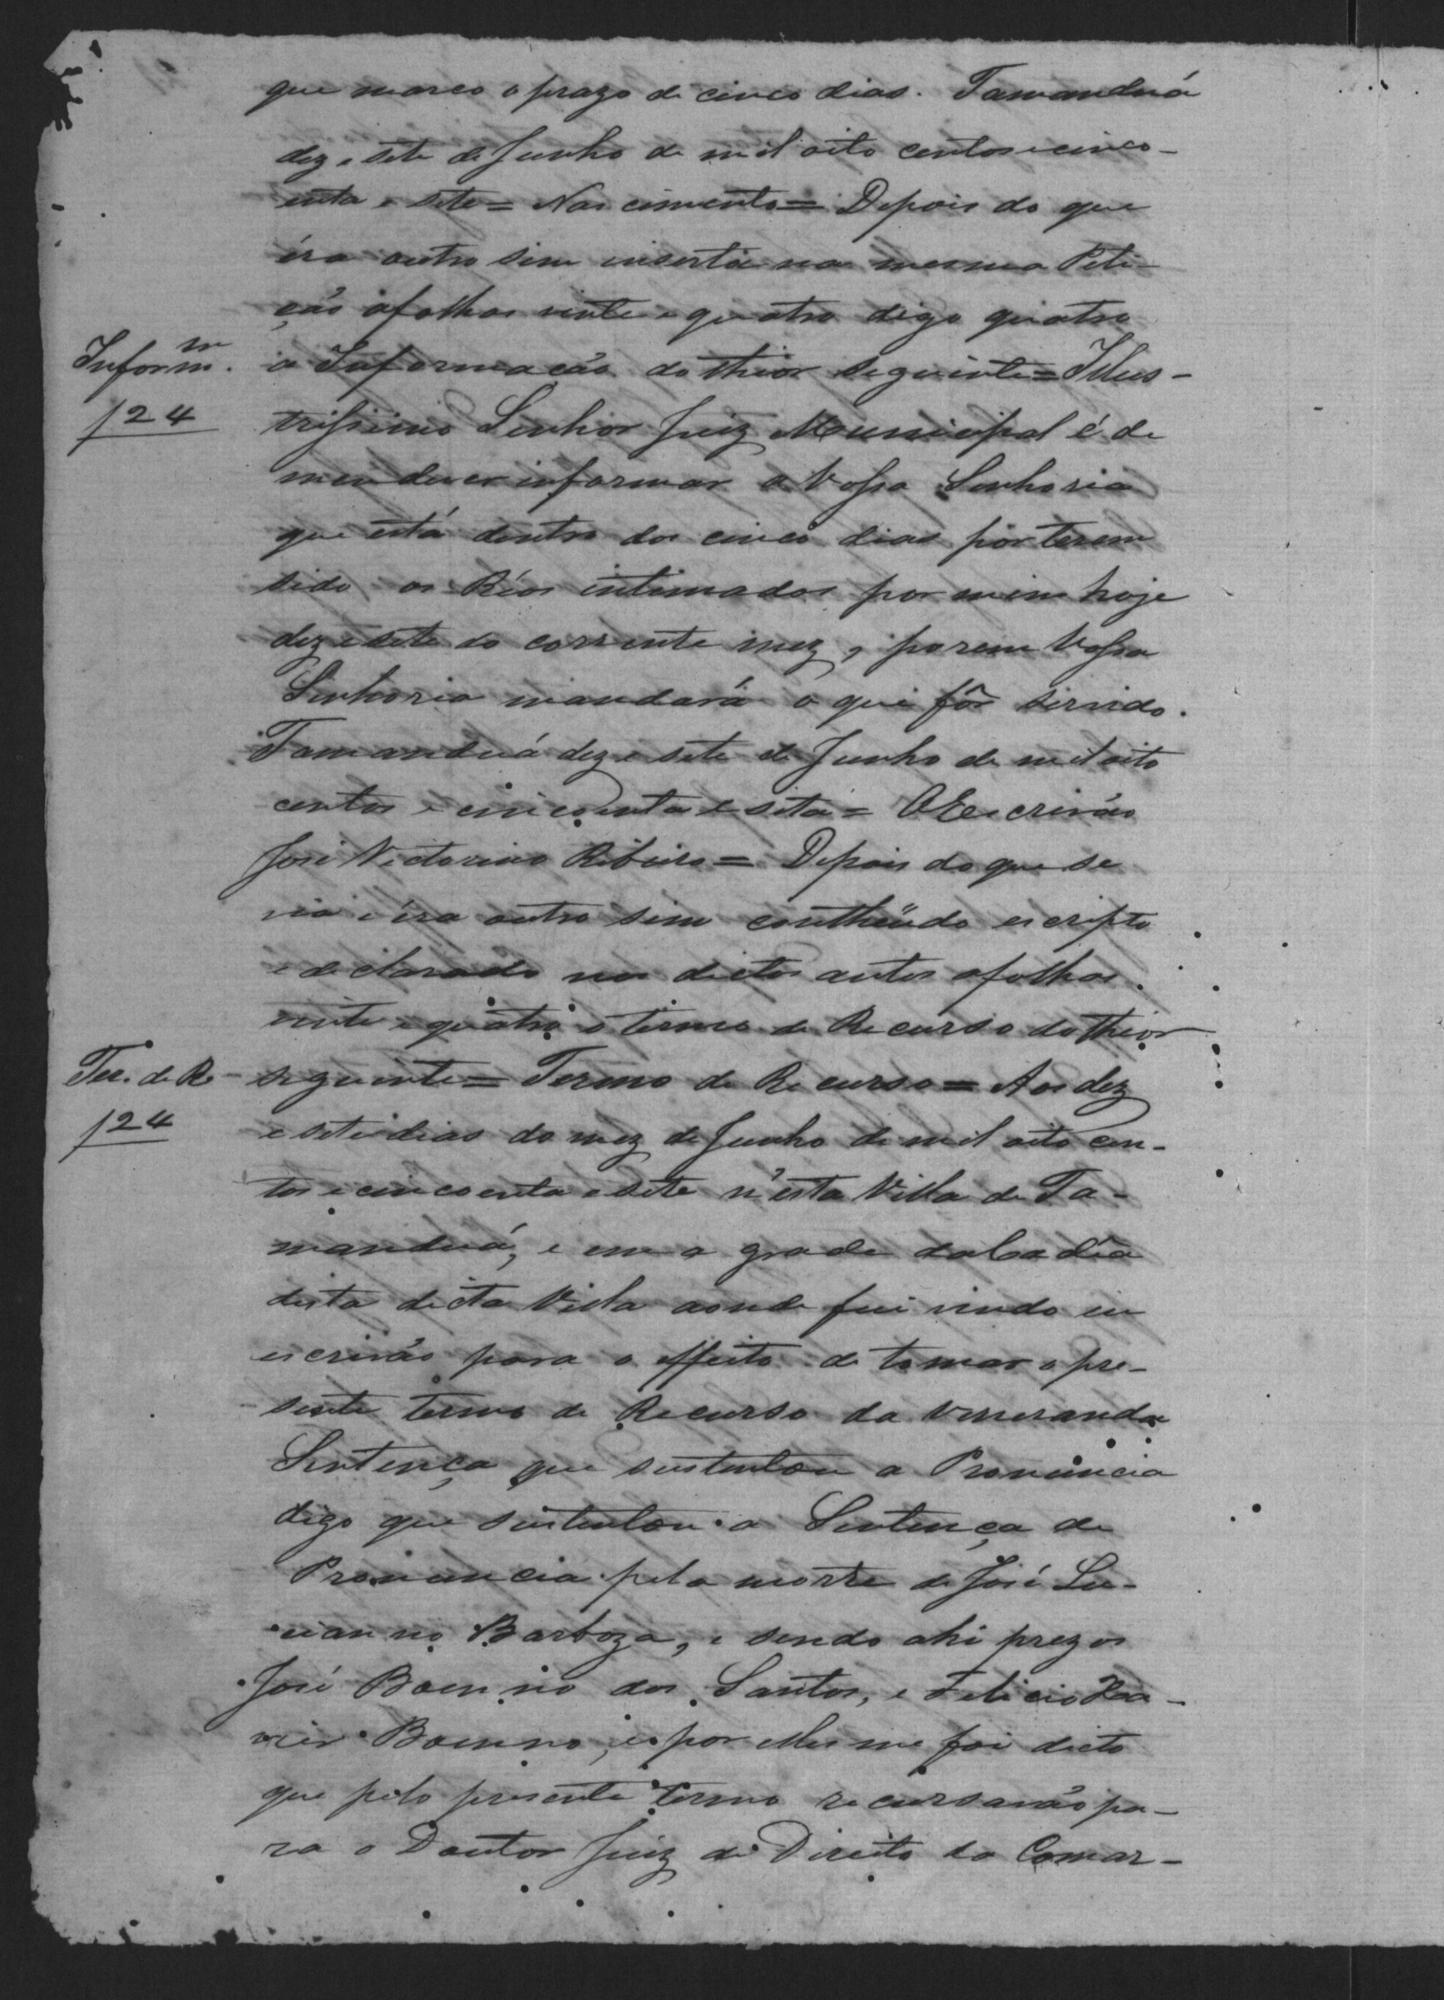 que marco o prazo de cinco dias. Tamanduá
dez e sete de Junho de mil oito centos e cinco-
enta e sete = Nascimento = Depois do que
éra outro sim inserta na mesma Peti-
ção afolhas vinte e quatro digo quatro
Inform.m
f 24
a Informação do thior seguinte = Illus-
trissimo Senhor Juiz Municipal é de
meu dever informar a Vossa Senhoria
que está dentro dos cinco dias por terem
sido os Réos intimados por mim hoje
dez e sete do corrente mez, porem Vossa
Senhoria mandará o que fôr servido.
Tamanduá dez e sete de Junho de mil oito
centos e cincoenta e sete = O Escrivão
José Victorino Ribeiro = Depois do que se
via e éra outro sim conthëudo escripto
e declarado nos dictos autos afolhas
vinte e quatro o termo de Recurso do thior
Ter. de Re-
f 24
seguinte = Termo de Recurso = Aos dez
e sete dias do mez de Junho de mil oito cen-
tos e cincoenta e sete n'esta Villa de Ta-
manduá, e em a grade da Cadêa
desta dicta Villa aonde fui vindo eu
escrivão para o effeito de tomar o pre-
sente termo de Recurso da veneranda
Sentença que sustentou a Pronuncia
digo que sustentou a Sentença de
Pronuncia pela morte de José Lu-
cianno Barboza, e sendo ahi prezos
José Boenno dos Santos, e Felicio Xa-
vier Boenno, e por elles me foi dicto
que pelo presente termo recursavão pa-
ra o Doutor Juiz de Direito da Comar-